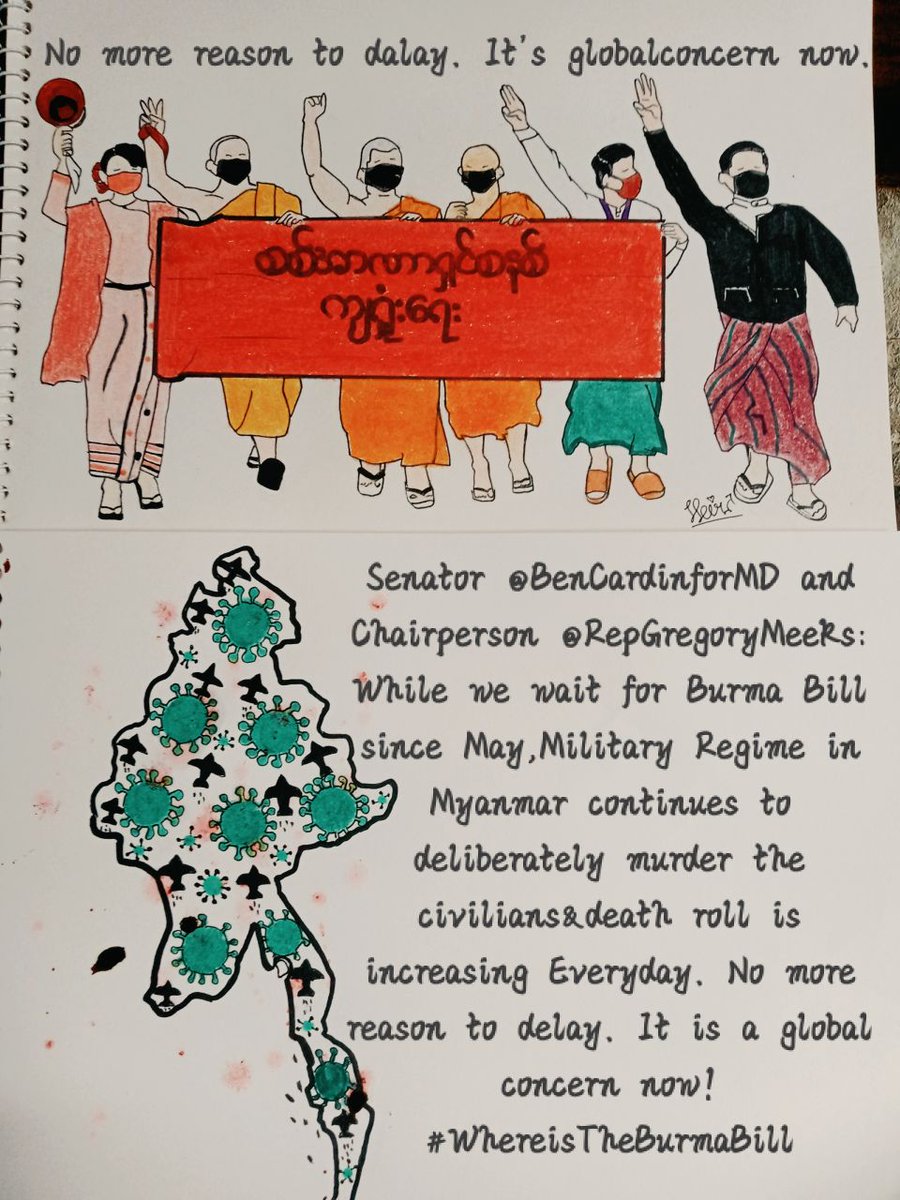 No more reason to dalay. It's globalconcern now.
စစ်အာဏာရှင်စနစ်
ကျရှုံးရေး
Senator @BenCardinforMD and
Chairperson @RepGregoryMeeks:
While we wait for Burma Bill
since May,Military Regime in
Myanmar continues to
deliberately murder the
civilians&death roll is
increasing Everyday. No more
reason to delay. It is a global
concern now!
#WhereisTheBurmaBill